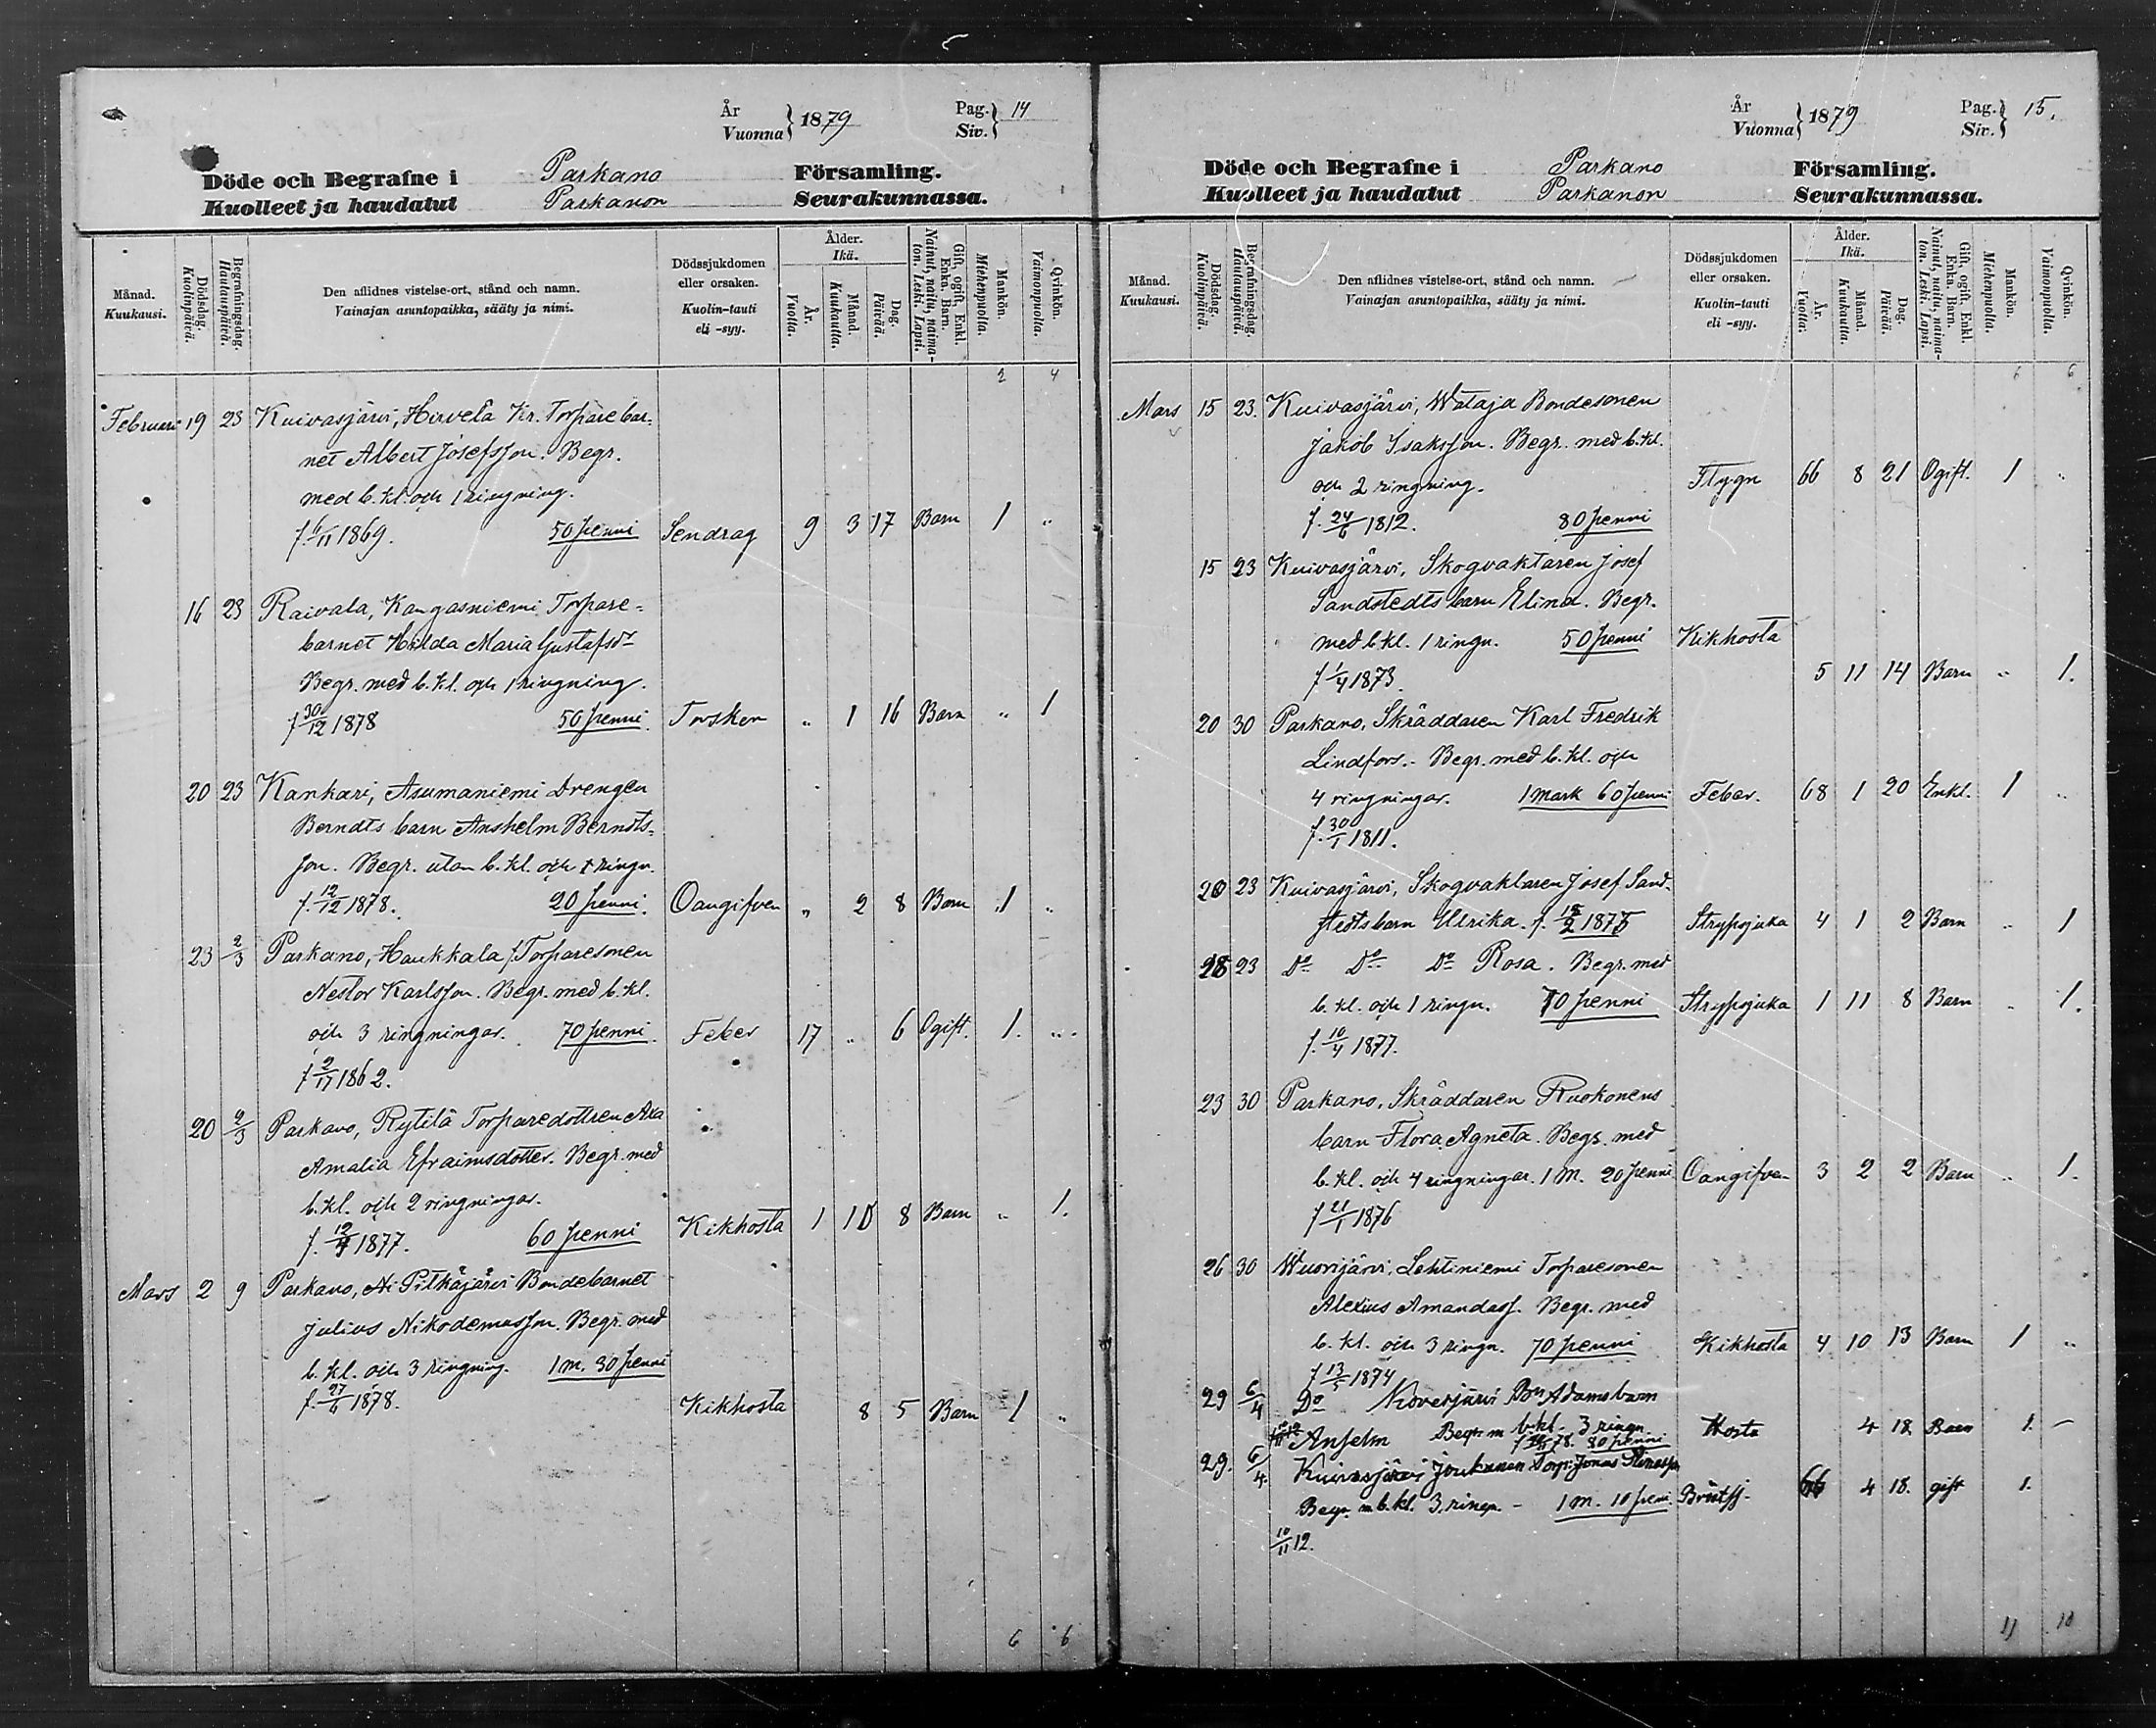 År
Vuonna } 1879
Pag.
Siv. } 14
Döde och Begrafne i Parkano Församling.
Kuolleet ja haudatut Parkanon Seurakunnassa.
Månad. Kuukausi.
Dödsdag. Kuolinpäivä.
Begrafningsdag. Hautauspäivä.
Den aflidnes vistelse-ort, stånd och namn.
Vainajan asuntopaikka, sääty ja nimi.
Dödssjukdomen eller orsaken. Kuolin-tauti eli -syy.
Ålder. Ikä.
År. Vuotta.
Månad. Kuukautta.
Dag. Päivää.
Gift, ogift. Enkl. Enka. Barn. Nainut, naitu, naimaton. Leski. Lapsi.
Mankön. Miehenpuolia.
Qvinkön. Vaimonpuolia.
2 4
Februari 19 23 Kuivasjärvi, Hirvelä Kr. Torparebar=
net Albert Josefsson. Begr.
med b. kl. och 1 ringning.
f. 6/11 1869. 50 penni Sendrag 9 3 17 Barn 1 "
16 23 Raivala, Kangasniemi Torpare=
barnet Hilda Maria Gustafsdr
Begr. med b. kl. och 1 ringning.
f 30/12 1878 50 penni Torsken " 1 16 Barn " 1
20 23 Kankari, Asumaniemi Drengen
Berndts barn Anshelm Berndts=
son. Begr. utan b. kl. och ringn.
f. 12/12 1878. 20 penni. Oangifven " 2 8 Barn 1 "
23 2/3 Parkano, Haukkala Torparesonen
Nestor Karlsson. Begr. med b. kl.
och 3 ringningar. 70 penni. Feber 17 " 6 Ogift. 1. "
f 1862.
20 2/3 Parkano, Rytilä Torparedottren
Amalia Efraimsdotter. Begr. med
b. kl. och 2 ringningar.
f. 1877. 60 penni Kikhosta 1 10 8 Barn " 1.
Mars 2 9 Parkano, Pitkäjärvi Bondebarnet
Julius Nikodemusson. Begr. med
b. kl. och 3 ringning. 1 m. 30 penni
f. 27/6 1878. Kikhosta 8 5 Barn 1 "
6 6
År
Vuonna } 1879
Pag.
Siv. } 15.
Döde och Begrafne i Parkano Församling.
Kuolleet ja haudatut Parkanon Seurakunnassa.
Månad. Kuukausi.
Dödsdag. Kuolinpäivä.
Begrafningsdag. Hautauspäivä.
Den aflidnes vistelse-ort, stånd och namn.
Vainajan asuntopaikka, sääty ja nimi.
Dödssjukdomen eller orsaken. Kuolin-tauti eli -syy.
Ålder. Ikä.
År. Vuotta.
Månad. Kuukautta.
Dag. Päivää.
Gift, ogift. Enkl. Enka. Barn. Nainut, naitu, naimaton. Leski. Lapsi.
Mankön. Miehenpuolia.
Qvinkön. Vaimonpuolia.
6 6
Mars 15 23. Kuivasjärvi, Wataja Bondesonen
Jakob Isaksson. Begr. med b. kl.
och 2 ringning. Flygn 66 8 21 Ogift. 1 "
f. 24/6 1812. 80 penni
15 23 Kuivasjärvi, Skogvaktaren Josef
Sandstedts barn Elina. Begr.
med b. kl. 1 ringn. 50 penni Kikhosta
f 1/4 1873. 5 11 14 Barn " 1.
20 30 Parkano, Skräddaren Karl Fredrik
Lindfors. - Begr. med b. kl. och
4 ringningar. 1 mark 60 penni Feber. 68 1 20 Enkl. 1 "
f. 30/1 1811.
20 23 Kuivasjärvi, Skogvaktaren Josef Sand-
stedts barn Ulrika. f. 1875 Strypsjuka 4 1 2 Barn " 1
18 23 Do Do Do Rosa. Begr. med
b. kl. och 1 ringn. 70 penni Strypsjuka 1 11 8 Barn " 1.
f. 10/4 1877.
23 30 Parkano, Skräddaren Ruokonens
barn Flora Agneta. Begr. med
b. kl. och 4 ringningar. 1 M. 20 penni Oangifven 3 2 2 Barn " 1.
f 21/1 1876
26 30 Wuorijärvi, Lehtiniemi Torparesonen
Alexius Amandass. Begr. med
b. kl. och 3 ringn. 70 penni Kikhosta 4 10 13 Barn 1 "
f 13/5 1874
29 6/4 Do Adams barn
Anselm Begr. m b. kl. 3 ringn Hosta 4 18 Barn 1. -
78. 80 penni
29. 6/4 Kuivasjärvi Torp. Jonas
Begr. m b. kl. 3. ringn - 1 m. 10 peni. 66 4 18. gift 1.
10/11 12.
11 10